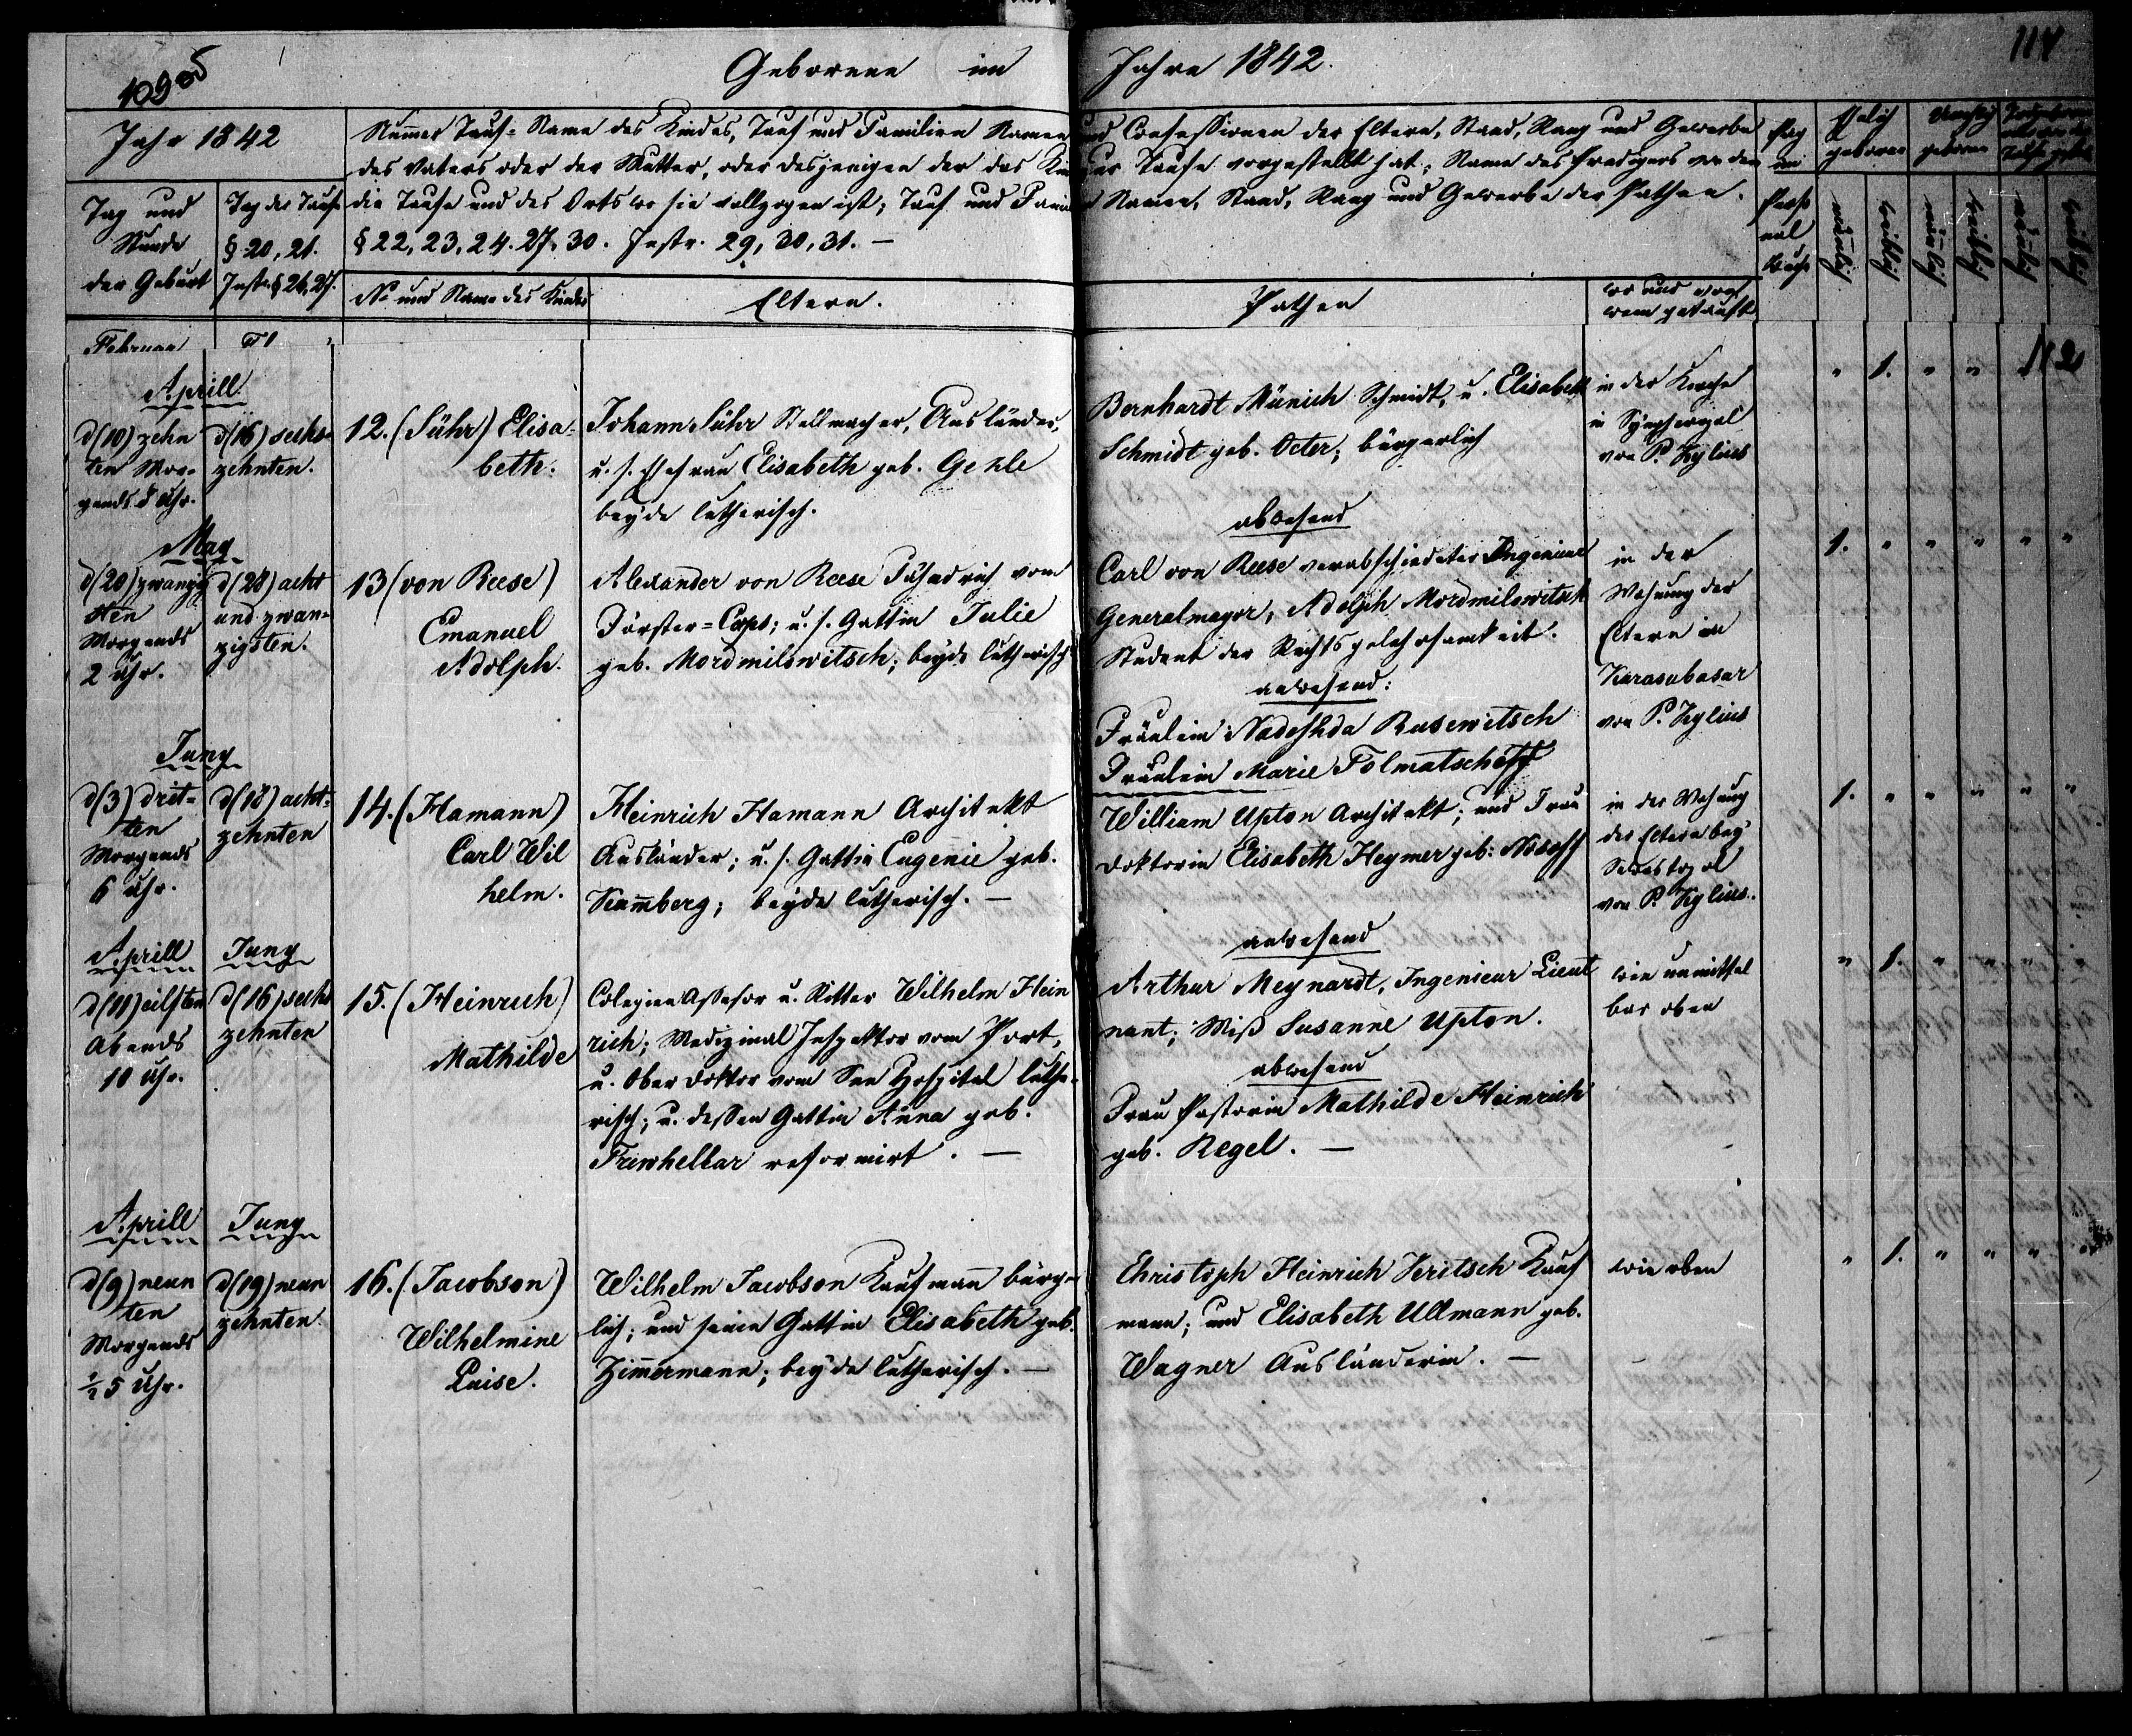 109
114
Geborene im Jahre 1842.
Jahr 1842
Numer Tauf-Name des Kindes, Tauf und Familien Namen und Confessionen der Eltern, Stand, Rang und Gewerbe
des Vaters oder der Mutter, oder desjenigen der das Kind zur Taufe vorgestellt hat; Name des Predigers der
die Taufe und des Orts wo sie vollzogen ist; Tauf und Namen, Stand, Rang und Gewerbe der Pathen.
§ 22, 23, 24. 27. 30. Instr. 29, 30, 31. —
Tag und
Stunde
der Geburt
Tag der Taufe
§ 20, 21.
Instr. § 26, 27.
No und Name des Kindes
Eltern.
Pathen
wo und von
wem getauft
Pag
im
geboren
geboren
mänlich
weiblich
mänlich
weiblich
mänlich
weiblich
Februar
112
Aprill
d (10) zehn
ten Mor-
gends 8 Uhr.
d (16) sechs-
zehnten.
12. (Sühr) Elisa-
beth.
Johann Sühr Stellmacher, Ausländer,
u. s. Ehefrau Elisabeth geb. Gehle
beyde lutherisch.
Bernhardt Münich Schmidt, u. Elisabeth
Schmidt geb. Octer; bürgerlich
in der Kirche
in Sympheropol
von P. Kylius
" 1. " "
May
d (20) zwanzig
sten
Morgends
2 Uhr.
d (28) acht
und zwan-
zigsten.
13 (von Reese)
Emanuel
Adolph.
Alexander von Reese Fähndrich vom
Förster-Corps; u. s. Gattin Julie
geb. Mordmilowitsch; beyde lutherisch
abwesend
Carl von Reese verabschiedeter Ingenieur
Generalmayor, Adolph Mordmilowitsch
Student der Rechtsgelehrsamkeit.
anwesend:
Fräulein Nadeshda Rusewitsch
Fräulein Marie Tolmatscheff
in der
Wohnung der
Eltern in
Karasubasar
von P. Kylius
1. " " " " "
Juny
d (3) drit-
ten
Morgends
6 Uhr.
d (18) acht-
zehnten
14. (Hamann)
Carl Wil
helm.
Heinrich Hamann Architekt
Ausländer; u. s. Gattin Eugenie geb.
Kam̄berg; beyde lutherisch. —
William Upton Architekt; und Frau
Doktorin Elisabeth Heymer geb: Nosoff
in der Wohnung
der Eltern bey
Sewastopol
von P. Kylius.
1. " " " " "
Aprill
d (11) eilften
Abends
10 Uhr.
Juny
d (16) sechs
zehnten
15. (Heinrich)
Mathilde
Colegien Assesor u. Ritter Wilhelm Hein
rich; Medizinal Inspektor vom Port,
u. Ober Doktor vom See Hospital luthe-
risch; u. dessen Gattin Anna geb.
Trewhellar reformirt. —
anwesend
Arthur Meynardt, Ingenieur Lieut
nant; Miß Susanne Upton.
abwesend
Frau Pastorin Mathilde Heinrich
geb. Regel. —
wie unmittel
bar oben
" 1. " " " "
Aprill
d (9) neun
ten
Morgends
½ 5 Uhr.
Juny
d (19) neun
zehnten
16. (Jacobson)
Wilhelmine
Luise.
Wilhelm Jacobson Kaufman̄ bürger-
lich; und seine Gattin Elisabeth geb.
Zim̄ermann; beyde lutherisch. —
Christoph Heinrich Jeritsch Kauf
mann; und Elisabeth Ullmann geb.
Wagner Ausländerin. —
wie oben
" 1. " " " "